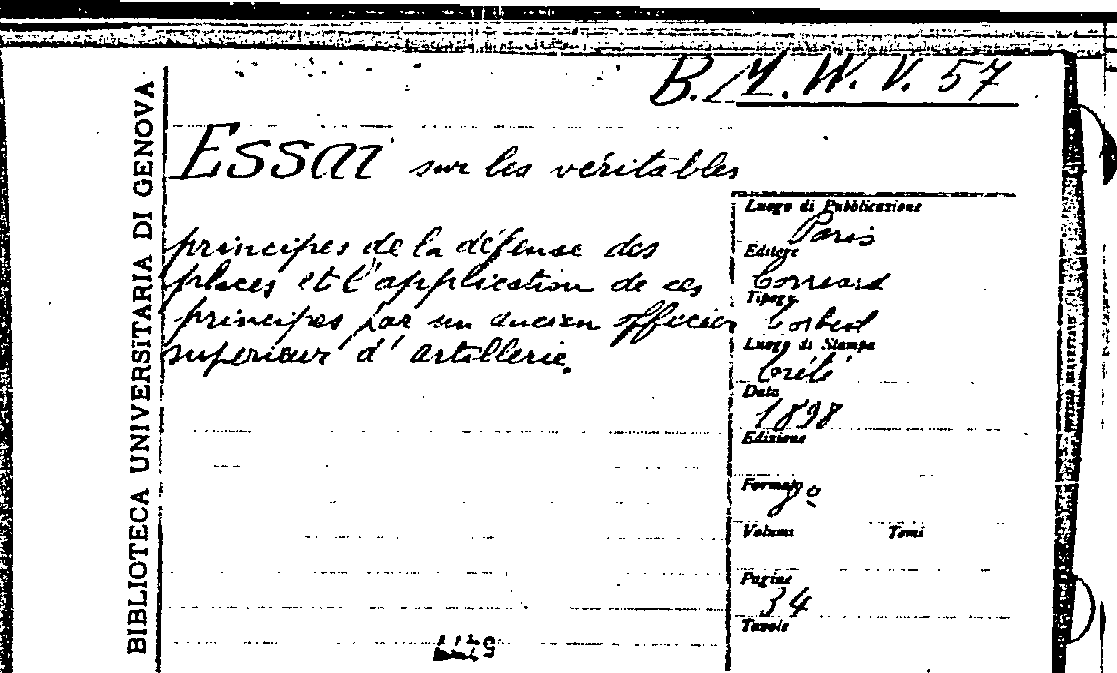 B.M.W.V. 57
BIBLIOTECA UNIVERSITARIA DI GENOVA
Essai sur les véritables
principes de la défense des
places et l'application de ces
principes par un ancien officier
superieur d'artillerie.
Luogo di Pubblicazione
Paris
Editore
Correard
Tipogr.
Corbeil
Luogo di Stampa
Crété
Data
1898
Edizione
Formato
8º
Volumi Tomi
Pagine
34
Tavole